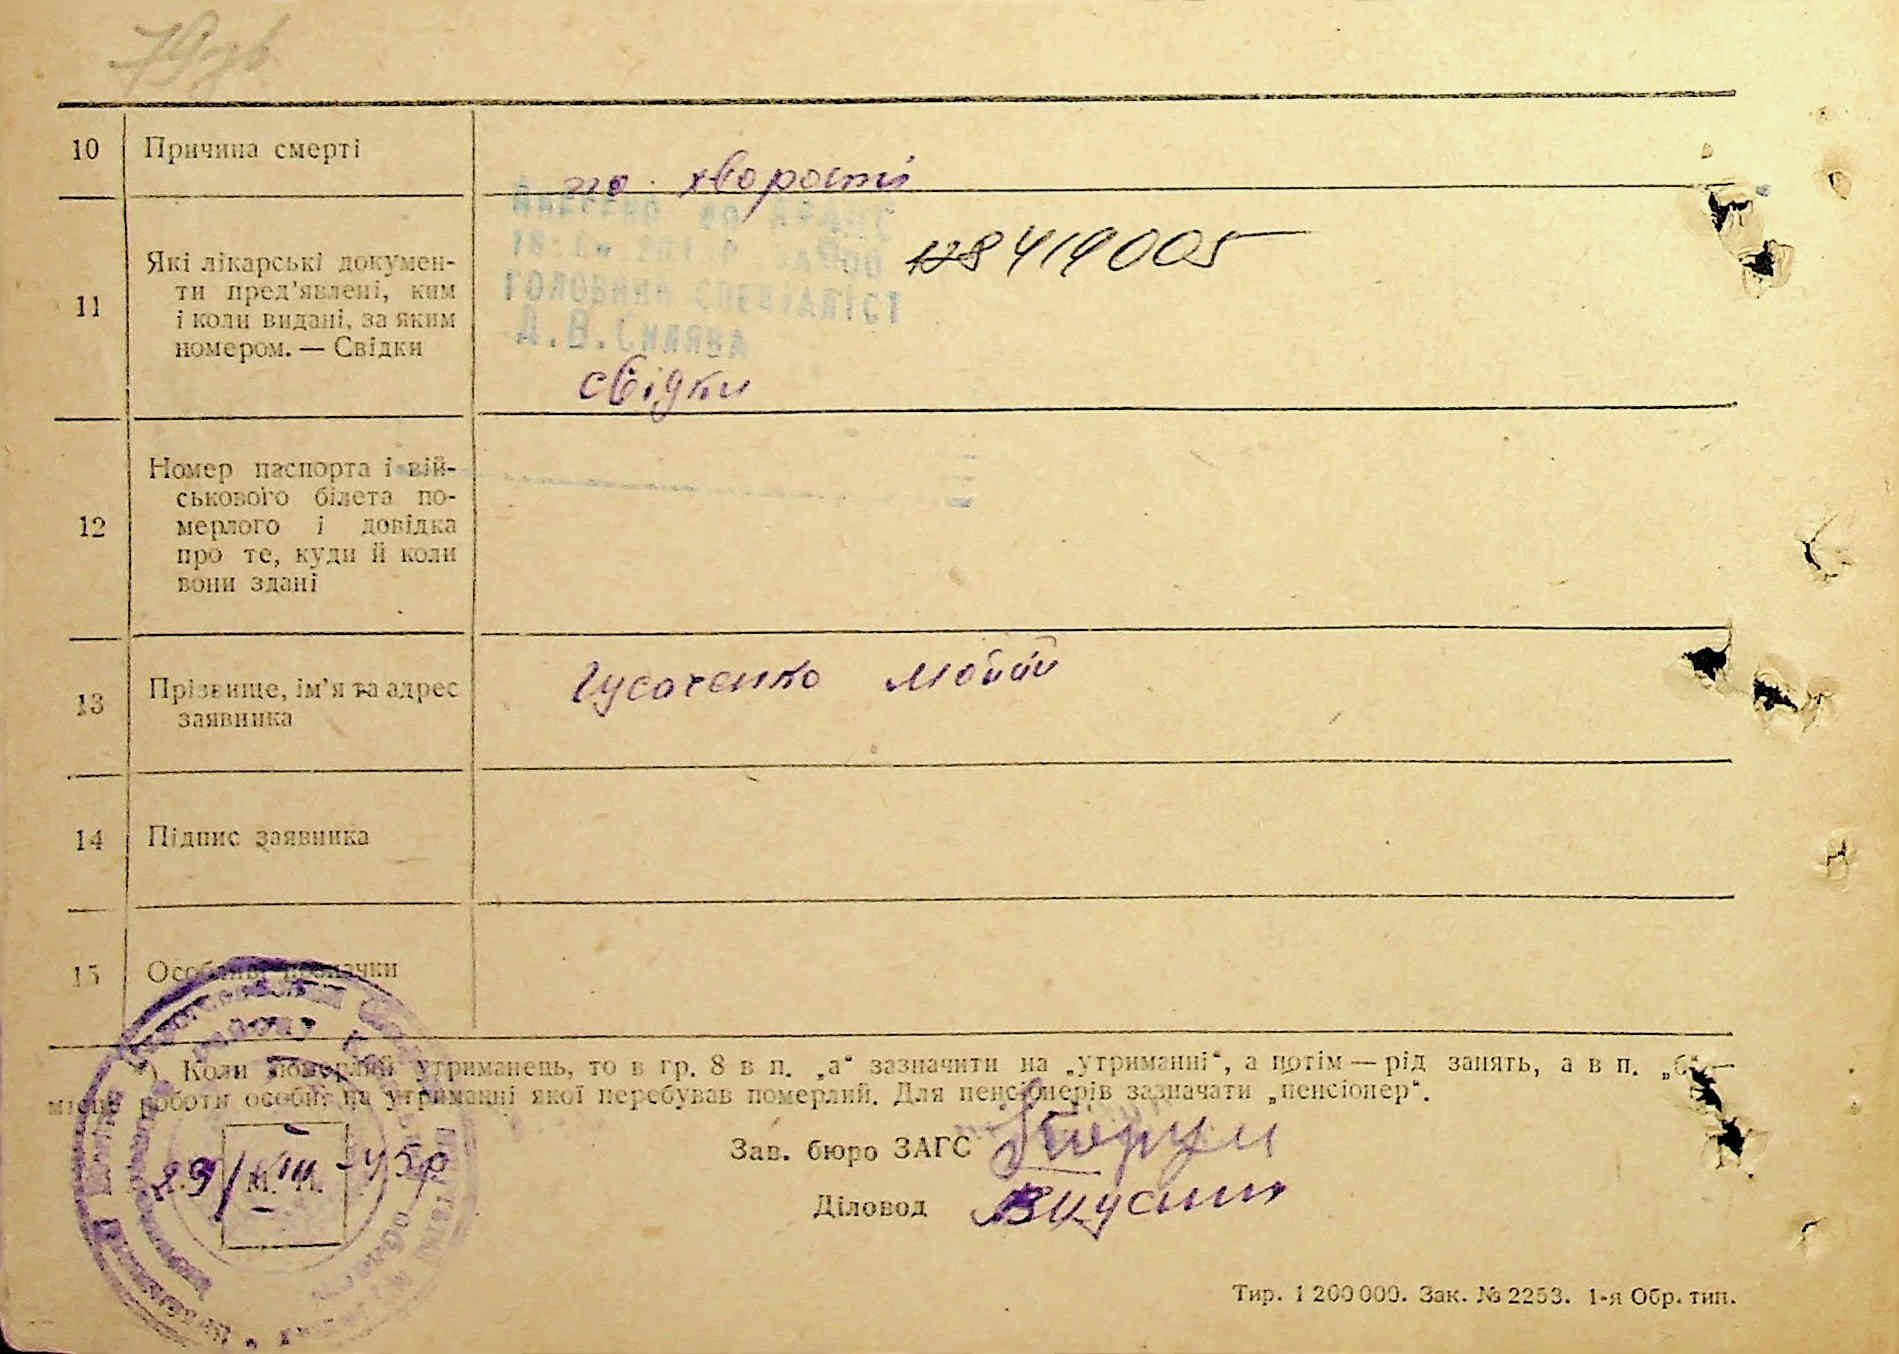 10 Причина смерті
по хворости
11 Які лікарські докумен-
ти пред'явлені, ким
і коли видані, за яким
номером. — Свідки
ГОЛОВНИЙ СПЕЦІАЛІСТ
свідки
12 Номер паспорта і вій-
ськового білета по-
мерлого і довідка
про те, куди й коли
вони здані
13 Прізвище, ім'я та адрес
заявника
Гусаченко
14 Підпис заявника
15 Особливі позначки
*) Коли померлий утриманець, то в гр. 8 в п. „а“ зазначити на „утриманні“, а потім — рід занять, а в п. „б“ —
місце роботи особи, на утриманні якої перебував померлий. Для пенсіонерів зазначати „пенсіонер“.
Зав. бюро ЗАГС
Діловод
29/VIII-45р
М. П.
Тир. 1 200 000. Зак. № 2253. 1-я Обр. тип.